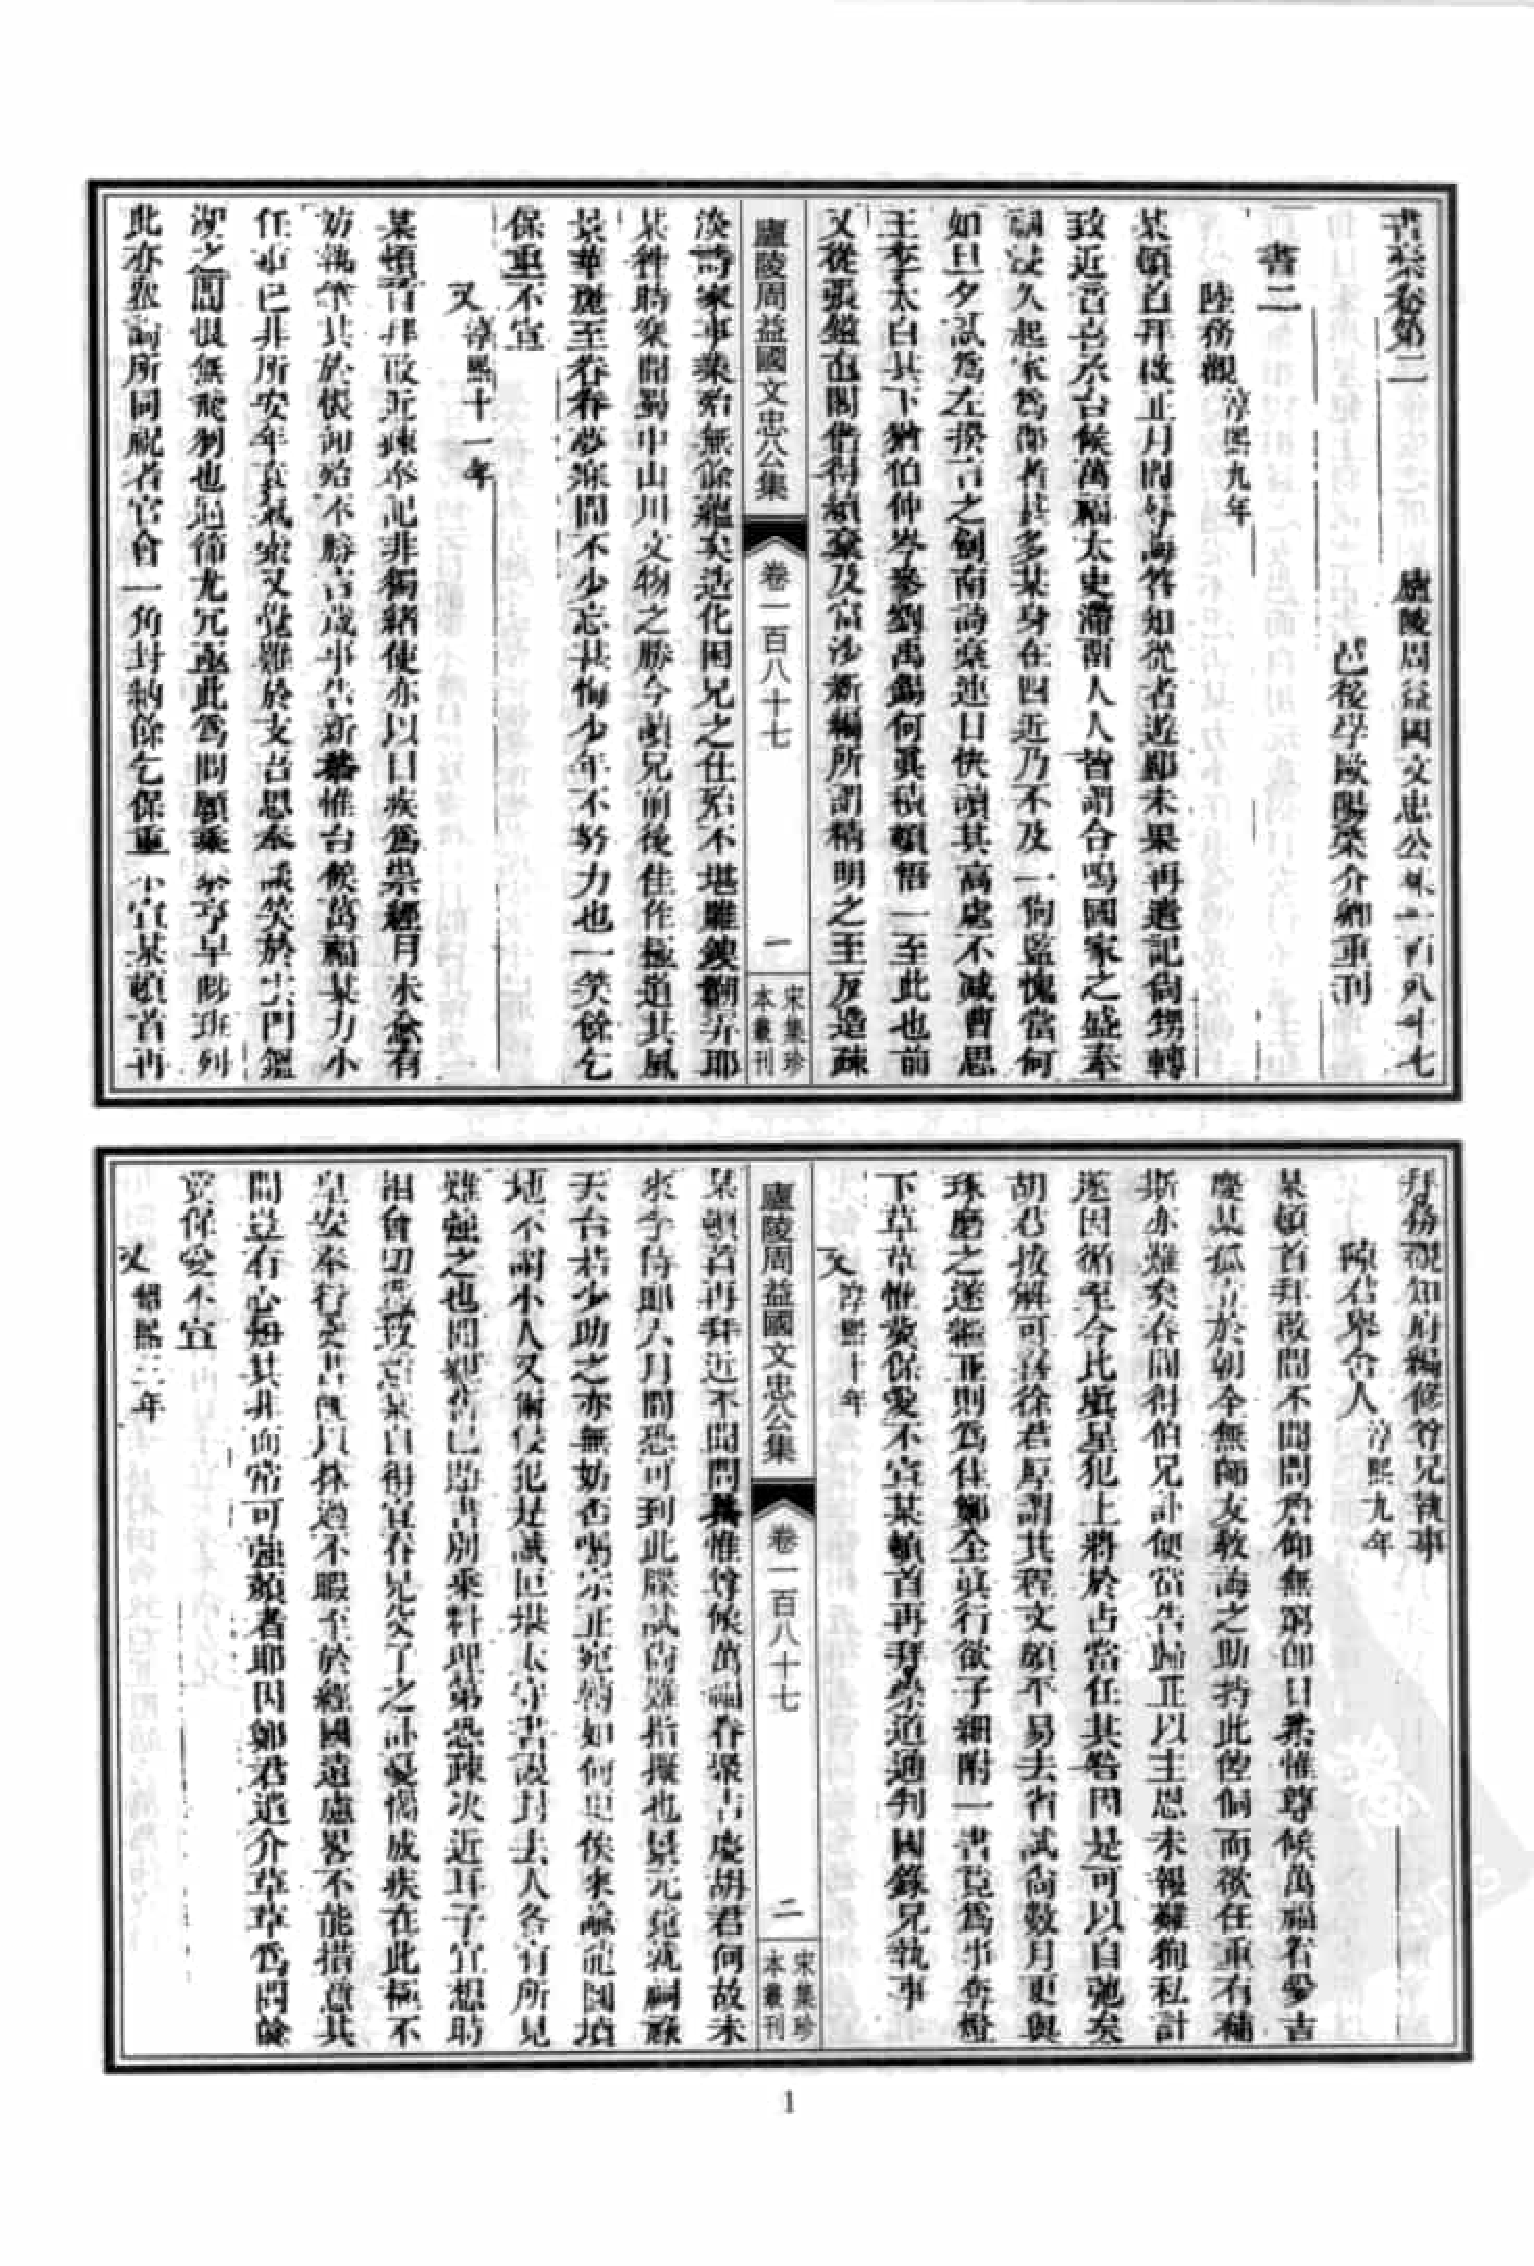 書槀卷第二　廬陵周益國文忠公集一百八十七
邑後學歐陽棨介卿重刊
書二
陸務觀 淳熙九年
某頓首拜啟正月間辱誨答知從者遊鄖未果再遣記倘甥轉
致近音喜承台候萬福太史滯留人人皆謂合鳴國家之盛奉
祠浸久起家爲郡者甚多某身在四近乃不及一狥監愧當何
如旦夕試爲左揆言之劍南詩槀連日快讀其高處不減曹思
王李太白其下猶伯仲岑參劉禹錫何眞積頓悟一至此也前
又從張鎡直閣借得續槀及富沙新編所謂精明之至反造疎
淡詩家事業殆無餘蘊矣造化困兄之仕殆不堪雕鎪𢳆弄耶
某作時槀聞蜀中山川文物之勝今讀兄前後佳作極道其風
景華麗至眷眷夢寐間不少忘甚悔少年不努力也一笑餘乞
保重不宣
又 淳熙十一年
某頓首拜啟近疎奉記非獨緒使亦以目疾爲祟經月未愈有
妨執筆其於悵仰殆不勝言歲事告新恭惟台候萬福某力小
任重已非所安年衰氣索又復難於支吾思奉談笑於去門鑑
湖之間恨無飛翔也適節尤冗亟此爲問願乘泰亨早趨班列
此亦衆論所同祝者官會一角封納餘乞保重不宣某頓首再
廬陵周益國文忠公集　卷一百八十七　一　宋集珍本叢刊
拜務觀知府編修尊兄執事
陳君舉舍人 淳熙九年
某頓首拜啟間不聞問詹仰無窮即日恭惟尊候萬福眷愛吉
慶某孤立於朝今無師友敎誨之助持此倥侗而欲任重有補
斯亦難矣春間得伯兄訃便當告歸正以主恩未報難狥私計
遂因循至今比塡星犯上將於占當任其咎因是可以自弛矣
胡君拔解可喜徐君原謂其程文頗不易去省試尚數月更與
琢磨之遂繼正則爲佳鄭全眞行欲子細附一書夜爲事奪燈
下草草惟冀保愛不宣某頓首再拜崇道通判國錄兄執事
又 淳熙十年
某頓首再拜近不聞問恭惟尊候萬福眷聚吉慶胡君何故未
來子侍郎六月間恐可到此牒試尚難指擬也景元竟就嗣祿
天台若少助之亦無妨否鳴宗正宛轉如何更俟來諭龍圖墳
地不謂小人又衝侵犯是誠叵堪太守書設封去人各有所見
難強之也聞親舊已貽書別乘料理第恐疎次近耳子宜想時
相會切幸致意某自得宜春兄安了之訃憂傷成疾在此極不
皇安奉行文書閱月抹過不暇至於經國遠慮畧不能措意其
間豈有心知其非而常可強顏者耶因鄭君遣介草草爲問餘
冀保愛不宣
又 紹熙三年
廬陵周益國文忠公集　卷一百八十七　二　宋集珍本叢刊
1